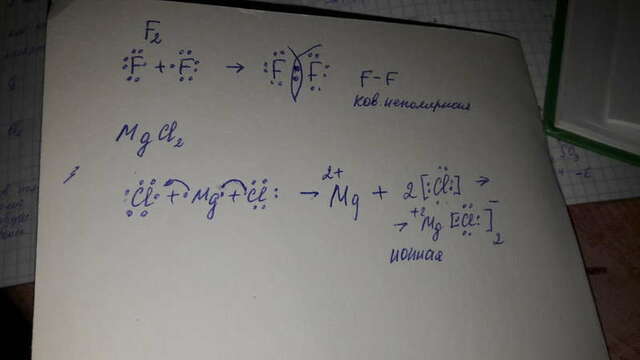 F₂
:F: + :F: → :F:F: F-F
ков. неполярная
MgCl₂
:Cl· + ·Mg· + ·Cl: → Mg²⁺ + 2[:Cl:]⁻ →
→ ⁺²Mg[:Cl:]⁻₂
ионная